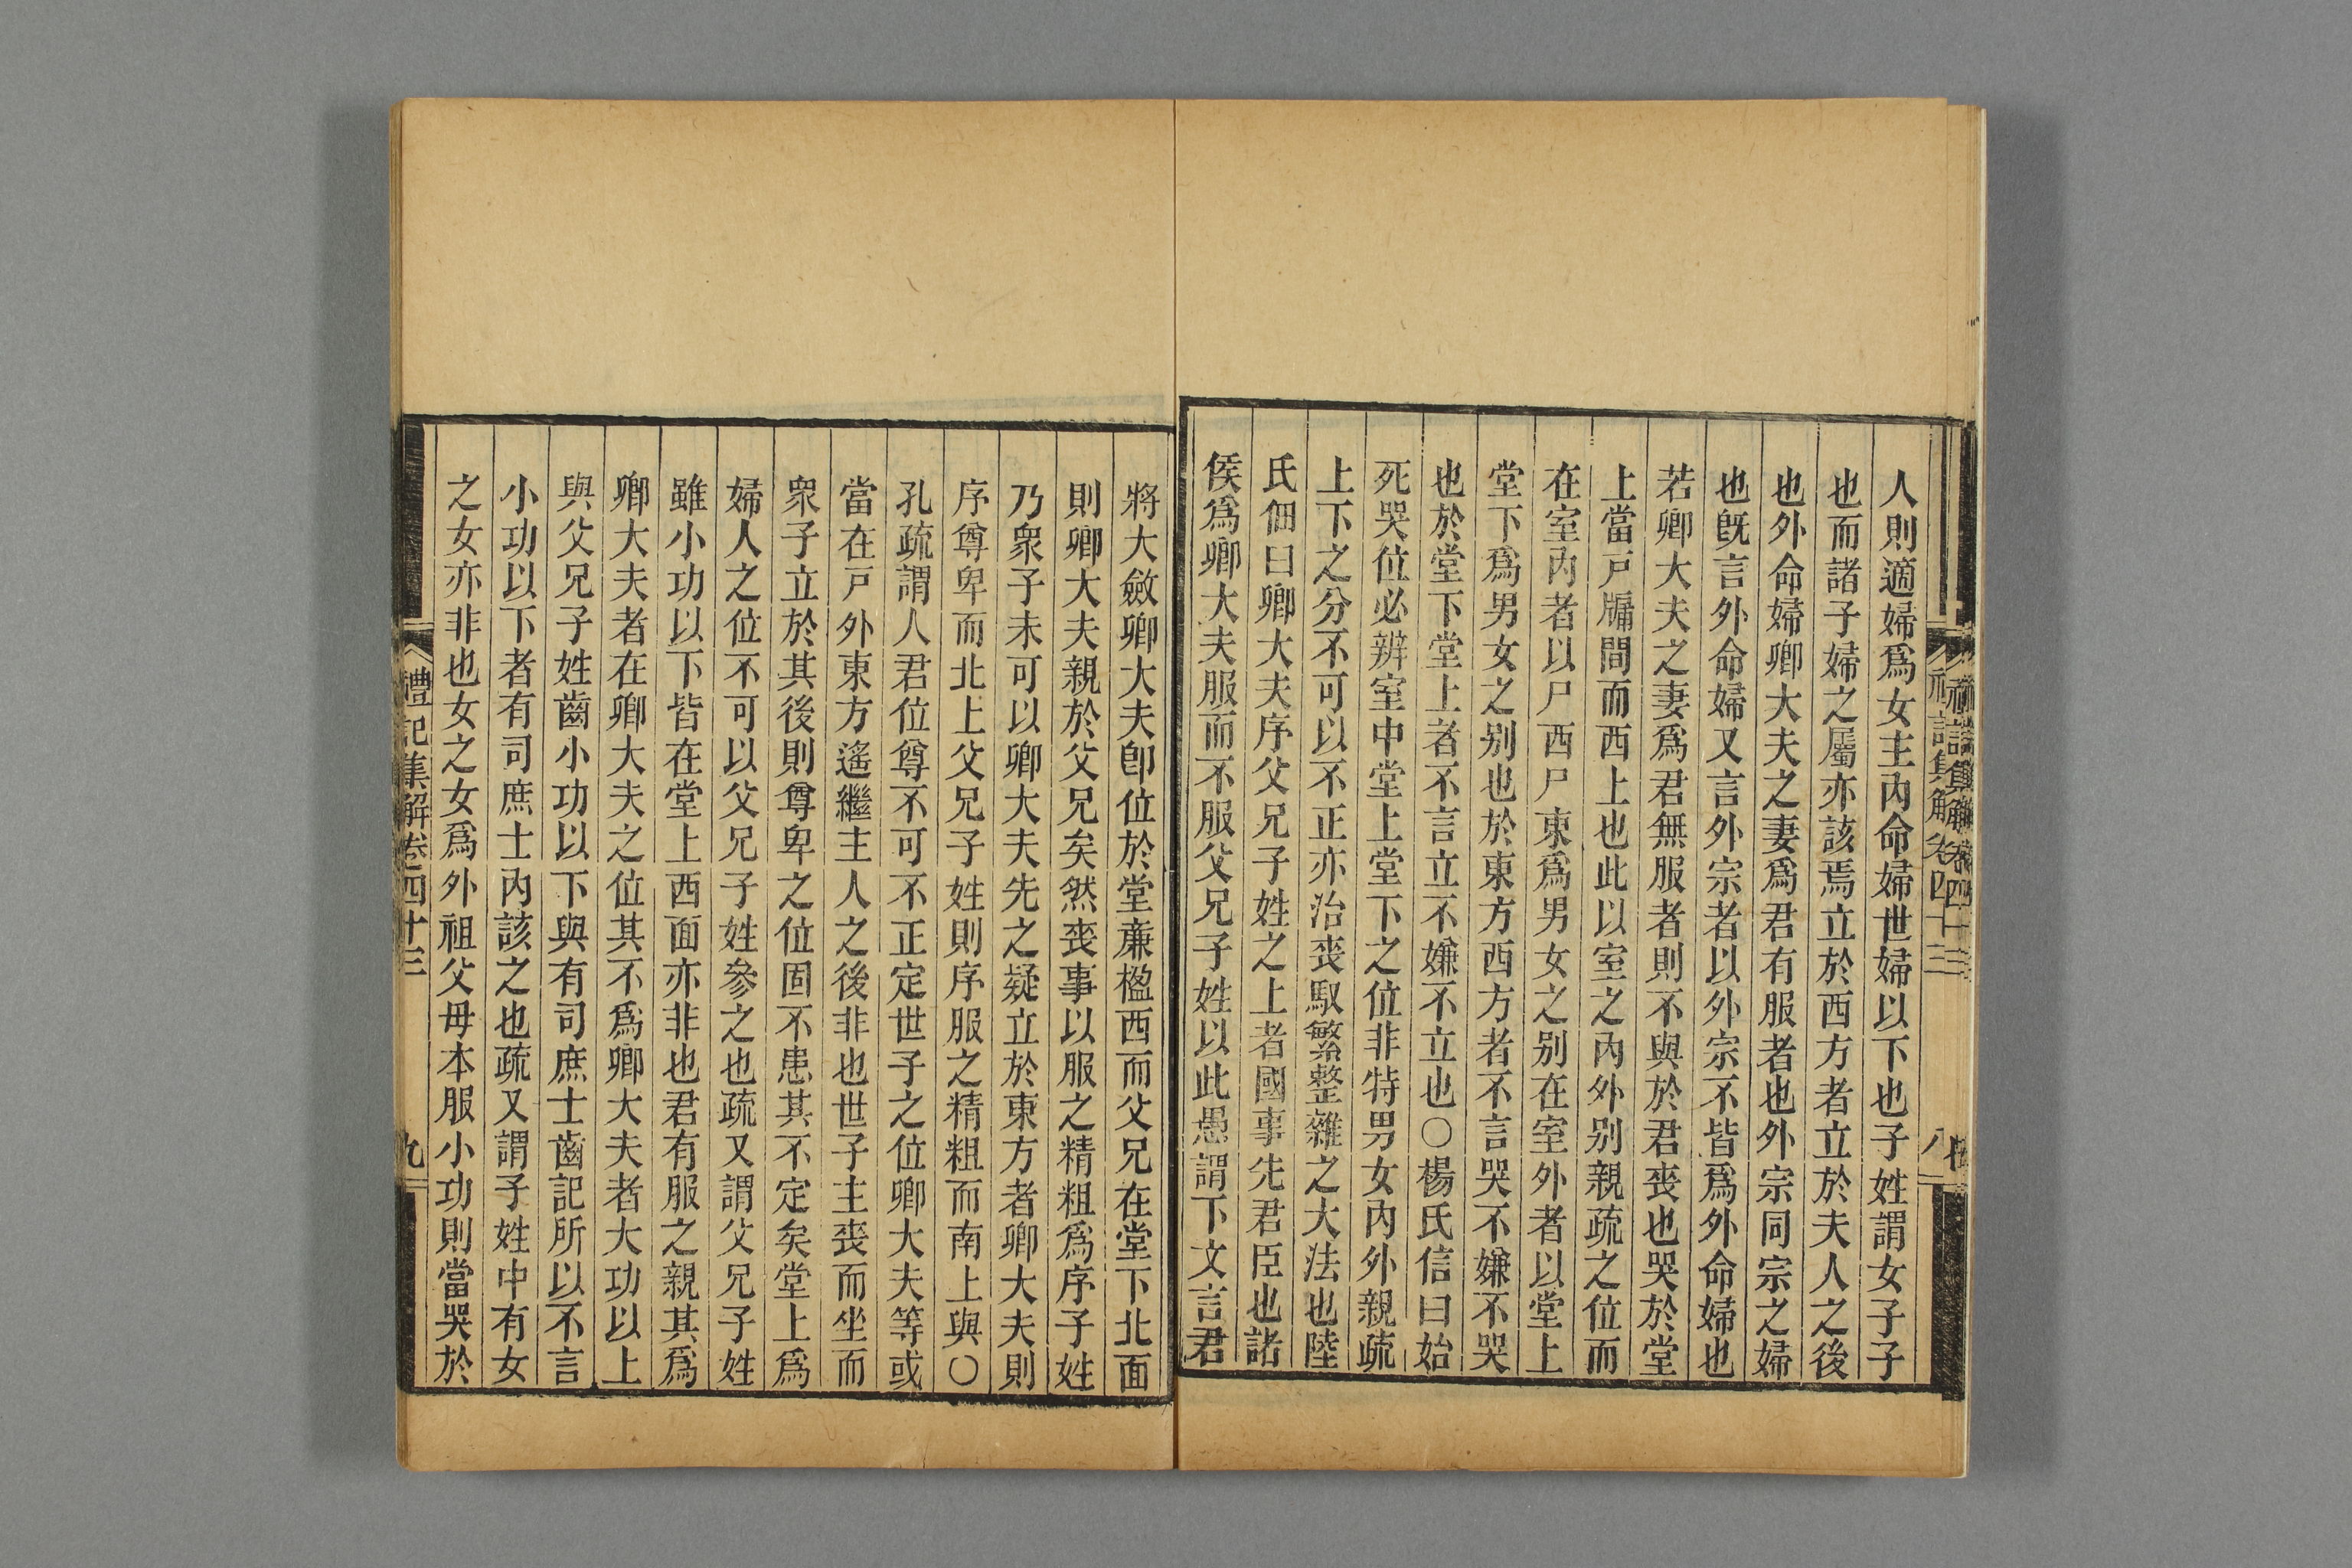 人則適婦爲女主內命婦世婦以下也子姓謂女子子
也而諸子婦之屬亦該焉立於西方者立於夫人之後
也外命婦卿大夫之妻爲君有服者也外宗同宗之婦
也旣言外命婦又言外宗者以外宗不皆爲外命婦也
若卿大夫之妻爲君無服者則不與於君喪也哭於堂
上當戸牖間而西上也此以室之內外别親疏之位而
在室內者以尸西尸東爲男女之别在室外者以堂上
堂下爲男女之别也於東方西方者不言哭不嫌不哭
也於堂下堂上者不言立不嫌不立也○楊氏信曰始
死哭位必辨室中堂上堂下之位非特男女內外親疏
上下之分不可以不正亦治喪馭繁整雜之大法也陸
氏佃曰卿大夫序父兄子姓之上者國事先君臣也諸
侯爲卿大夫服而不服父兄子姓以此愚謂下文言君
將大斂卿大夫卽位於堂亷楹西而父兄在堂下北面
則卿大夫親於父兄矣然喪事以服之精粗爲序子姓
乃衆子未可以卿大夫先之疑立於東方者卿大夫則
序尊卑而北上父兄子姓則序服之精粗而南上與○
孔疏謂人君位尊不可不正定世子之位卿大夫等或
當在戸外東方遙繼主人之後非也世子主喪而坐而
衆子立於其後則尊卑之位固不患其不定矣堂上爲
婦人之位不可以父兄子姓參之也疏又謂父兄子姓
雖小功以下皆在堂上西面亦非也君有服之親其爲
卿大夫者在卿大夫之位其不爲卿大夫者大功以上
與父兄子姓齒小功以下與有司庶士齒記所以不言
小功以下者有司庶士內該之也疏又謂子姓中有女
之女亦非也女之女爲外祖父母本服小功則當哭於
禮記集解卷四十三
九